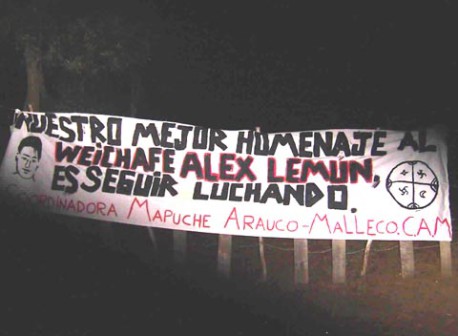 NUESTRO MEJOR HOMENAJE AL
WEICHAFE ALEX LEMÚN,
ES SEGUIR LUCHANDO.
COORDINADORA MAPUCHE ARAUCO-MALLECO.C.A.M